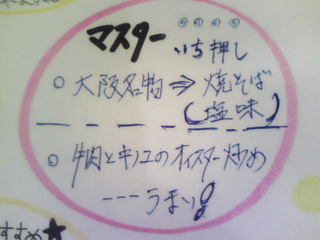 マスター いち押し
○ 大阪名物⇒焼そば
(塩味)
○ 牛肉とキノコのオイスター炒め
---うまい!
すすめ★